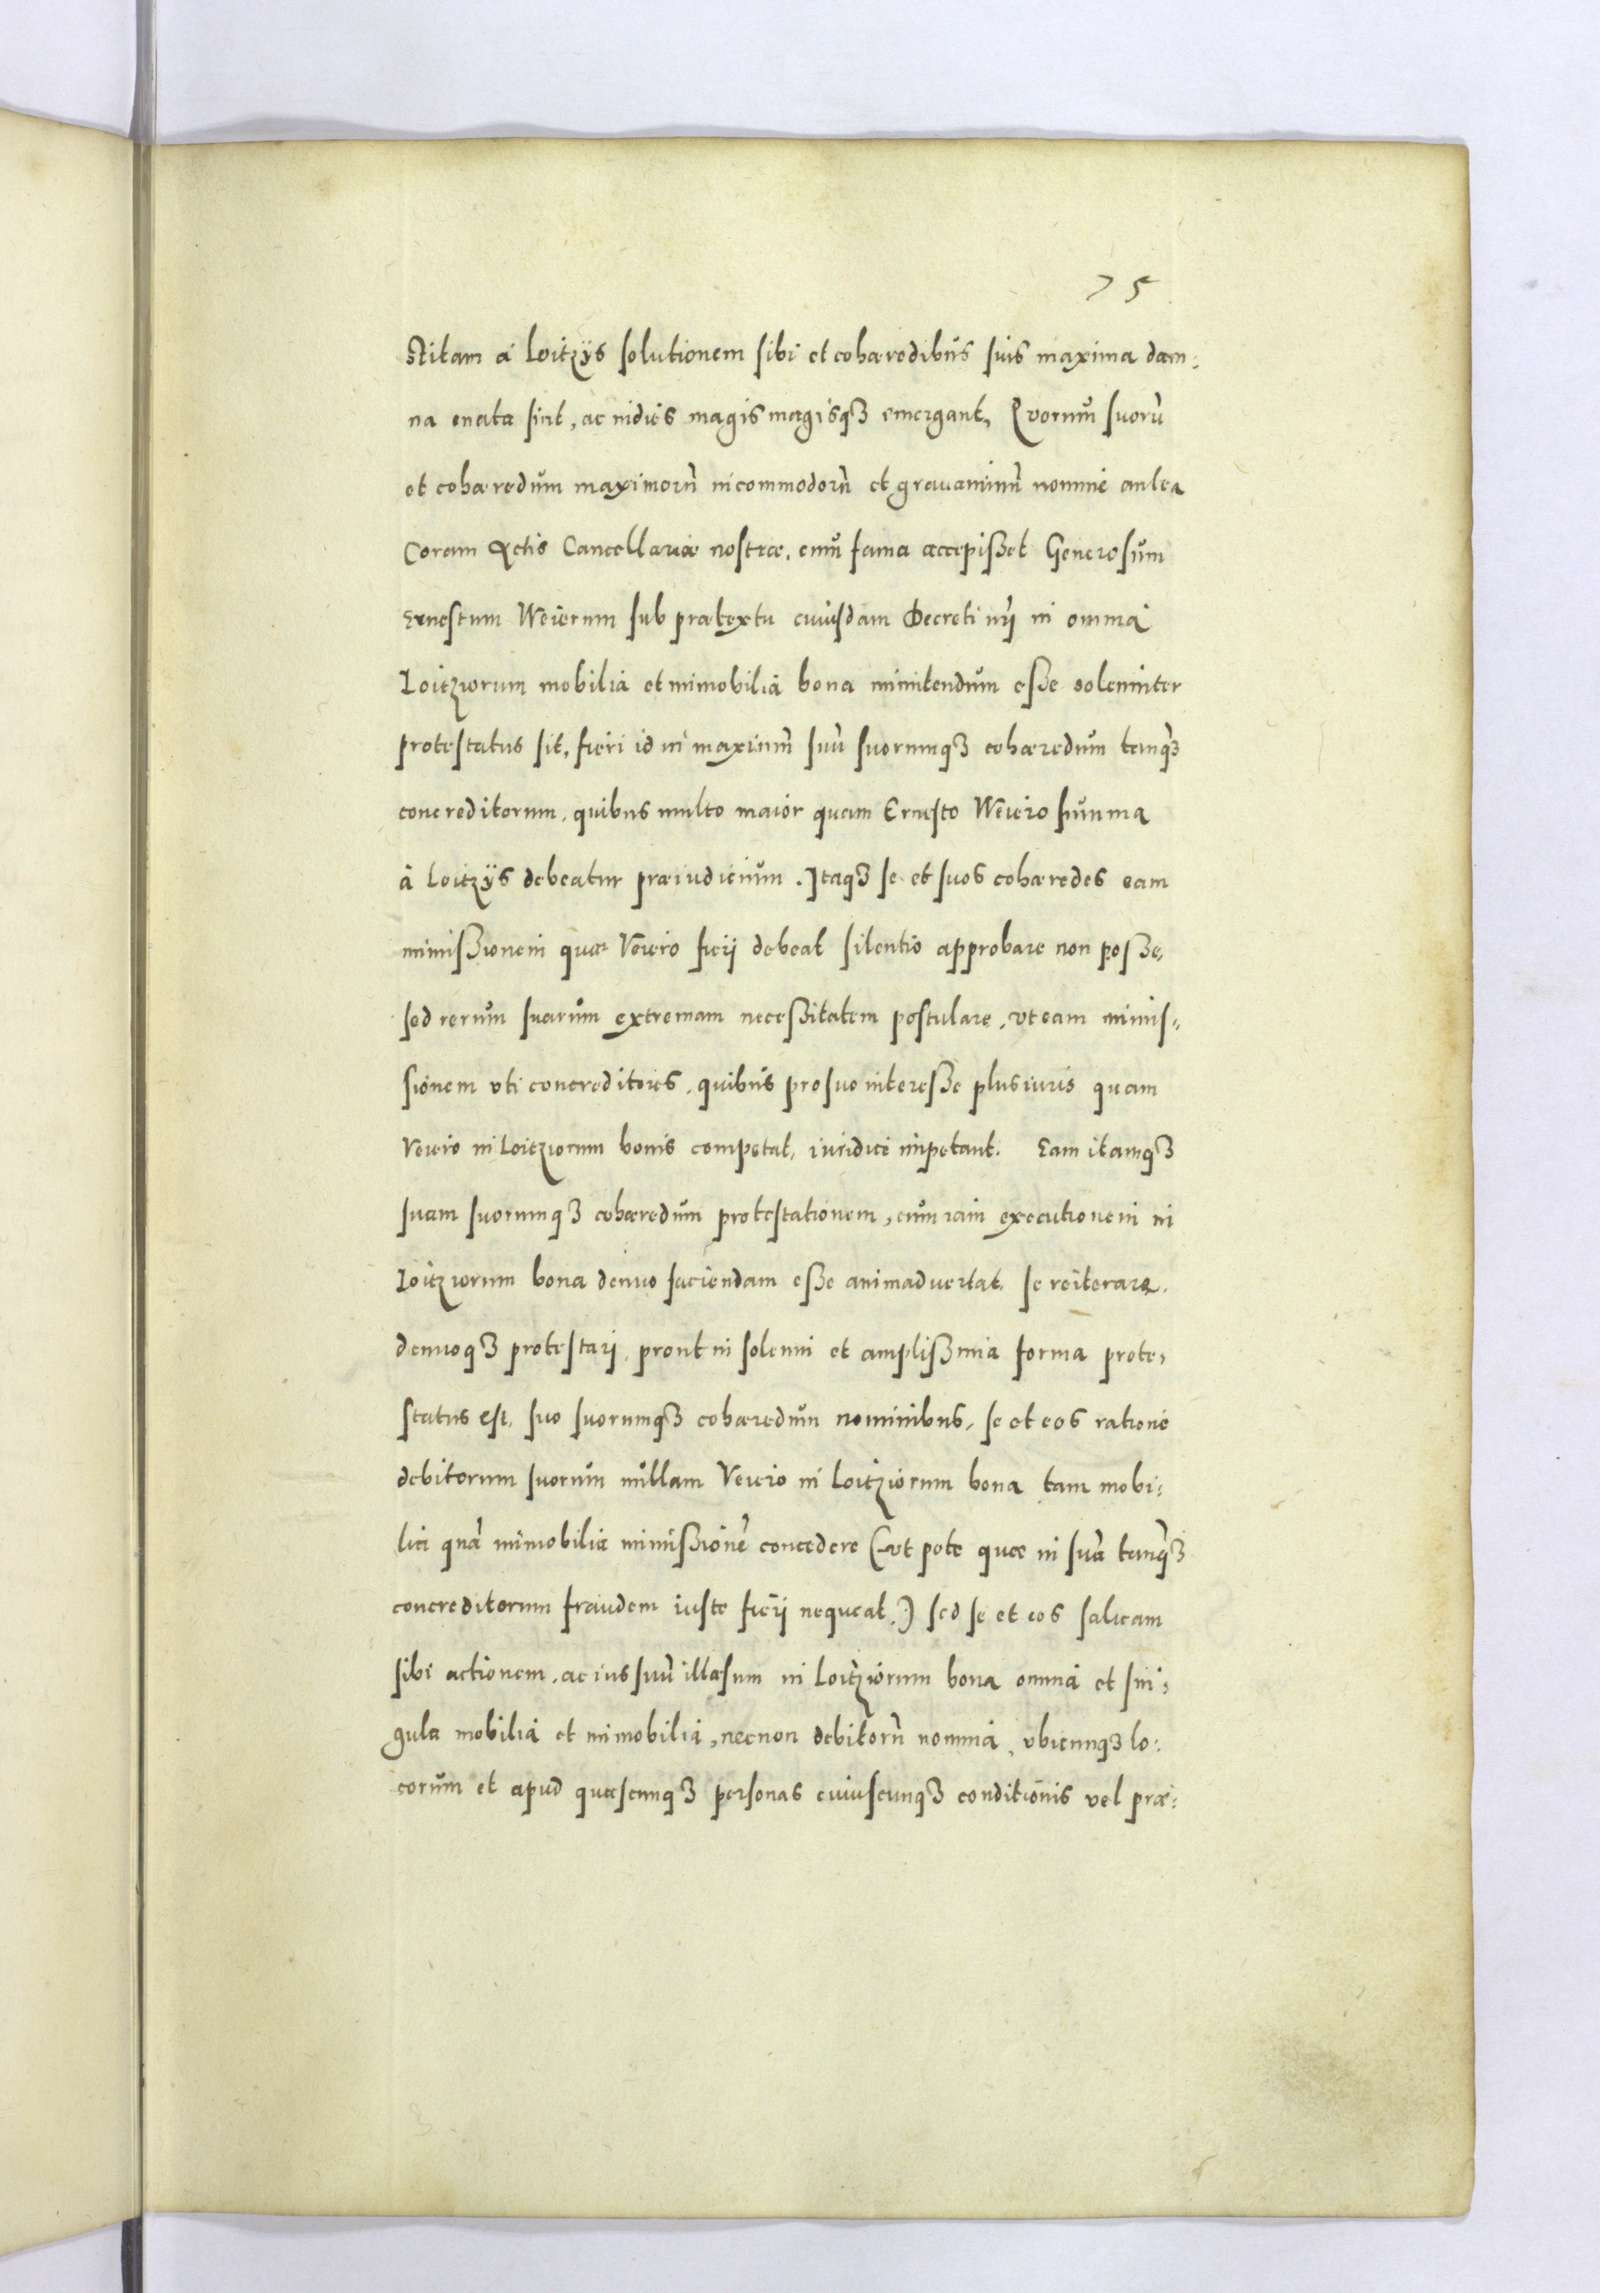 75
stitam à Loitzÿs solutionem sibi et cohæredibus suis maxima dam:
na enata sint, ac indies magis magisqȝ emergant, Quorum suorũ
et cohæredum maximorũ incommodorũ et grauaminũ nomine antea
Coram Actis Cancellariæ nostræ, cum fama accepißet Generosum
Ernestum Weierum sub prætextu cuiusdam Decreti nr̃i in omnia
Loitziorum mobilia et immobilia bona immittendum eße solenniter
protestatus sit, fieri id in maximũ suũ suorumqȝ cohæredum tanqȝ
concreditorum, quibus multo maior quam Ernesto Weiero summa
à Loitzÿs debeatur præiudicium. Itaqȝ se et suos cohæredes eam
immißionem quæ Veiero fieri debeat silentio approbare non poße,
sed rerum suarum extremam neceßitatem postulare, vt eam immis-
sionem vti concreditores, quibus pro suo intereße plus iuris quam
Veiero in Loitziorum bonis competat, iuridice impetant. Eam itamqȝ
suam suorumqȝ cohæredum protestationem, cum iam executionem in
Loitziorum bona denuo faciendam eße animaduertat, se reiterare,
denuoqȝ protestari, prout in solenni et amplißima forma prote,
status est, suo suorumqȝ cohæredum nominibus, se et eos ratione
debitorum suorum nullam Veiero in Loitziorum bona tam mobi:
lia quã immobilia immißionẽ concedere (vt pote quæ in suã tanqȝ
concreditorum fraudem iuste fieri nequeat.) sed se et eos saluam
sibi actionem, ac ius suũ illæsum in Loitziorum bona omnia et sin:
gula mobilia et immobilia, necnon debitorũ nomina, vbicunqȝ lo:
corum et apud quascunqȝ personas cuiuscunqȝ conditionis vel præ: